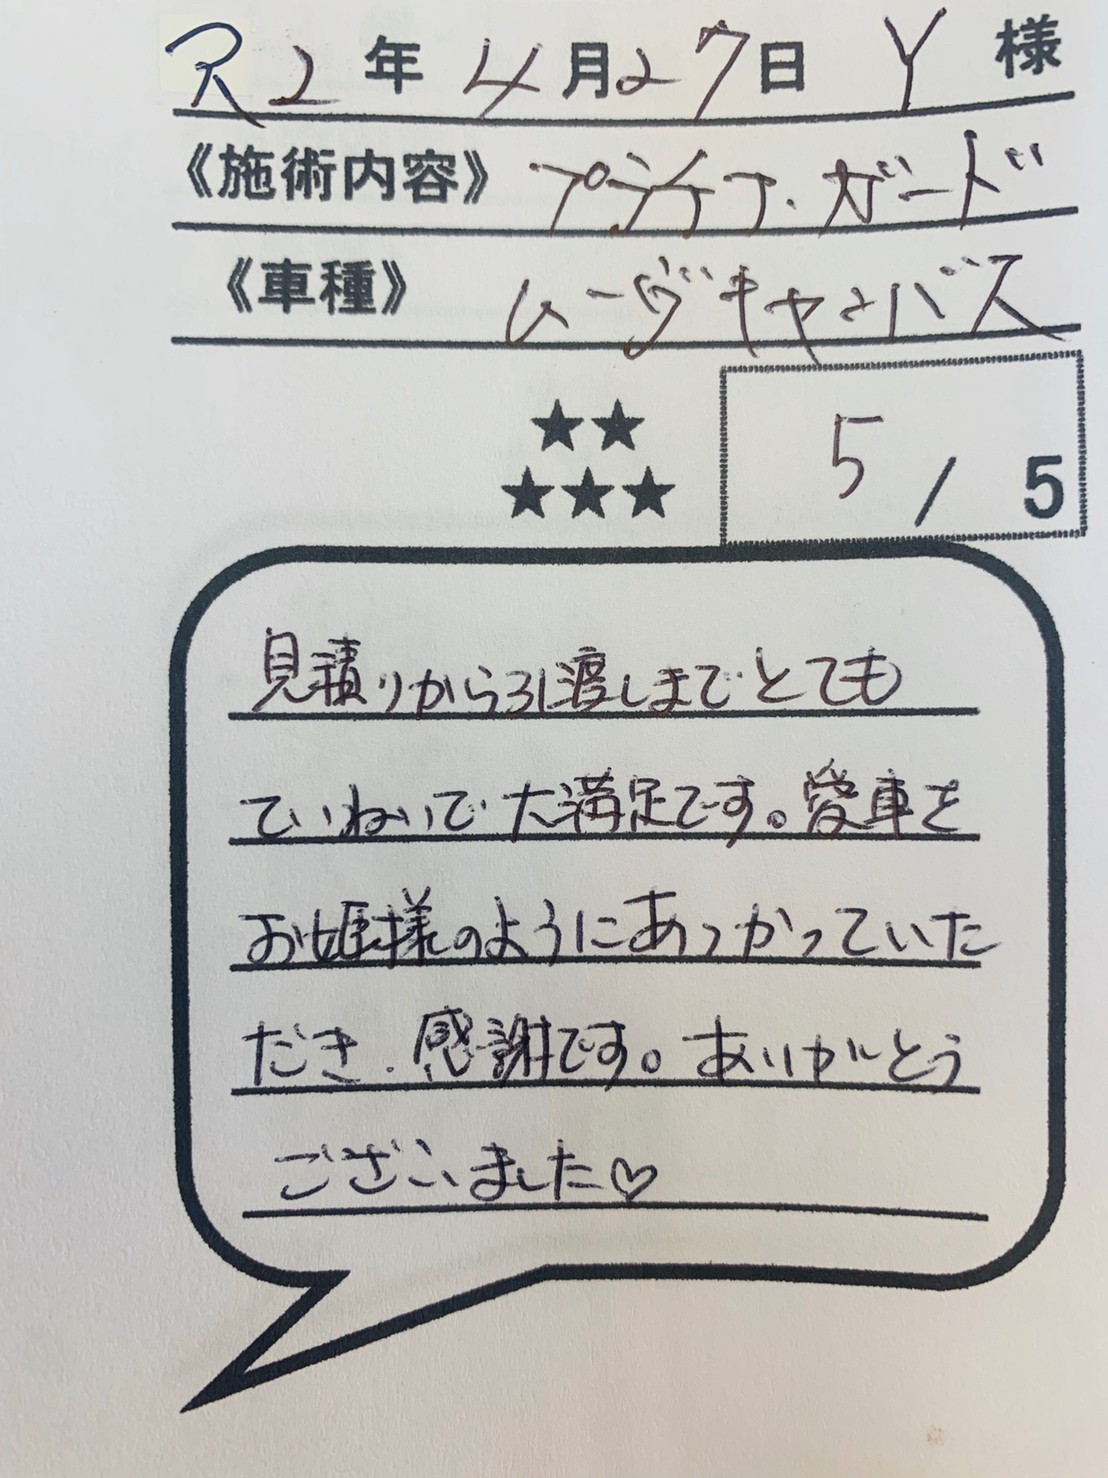 R2年 4月27日 Y 様
《施術内容》 プラチナ・ガード
《車種》 ムーヴキャンバス
★★
★★★
5/5
見積りから引渡しまでとても
ていねいで大満足です。愛車を
お姫様のようにあつかっていた
だき、感謝です。ありがとう
ございました♡